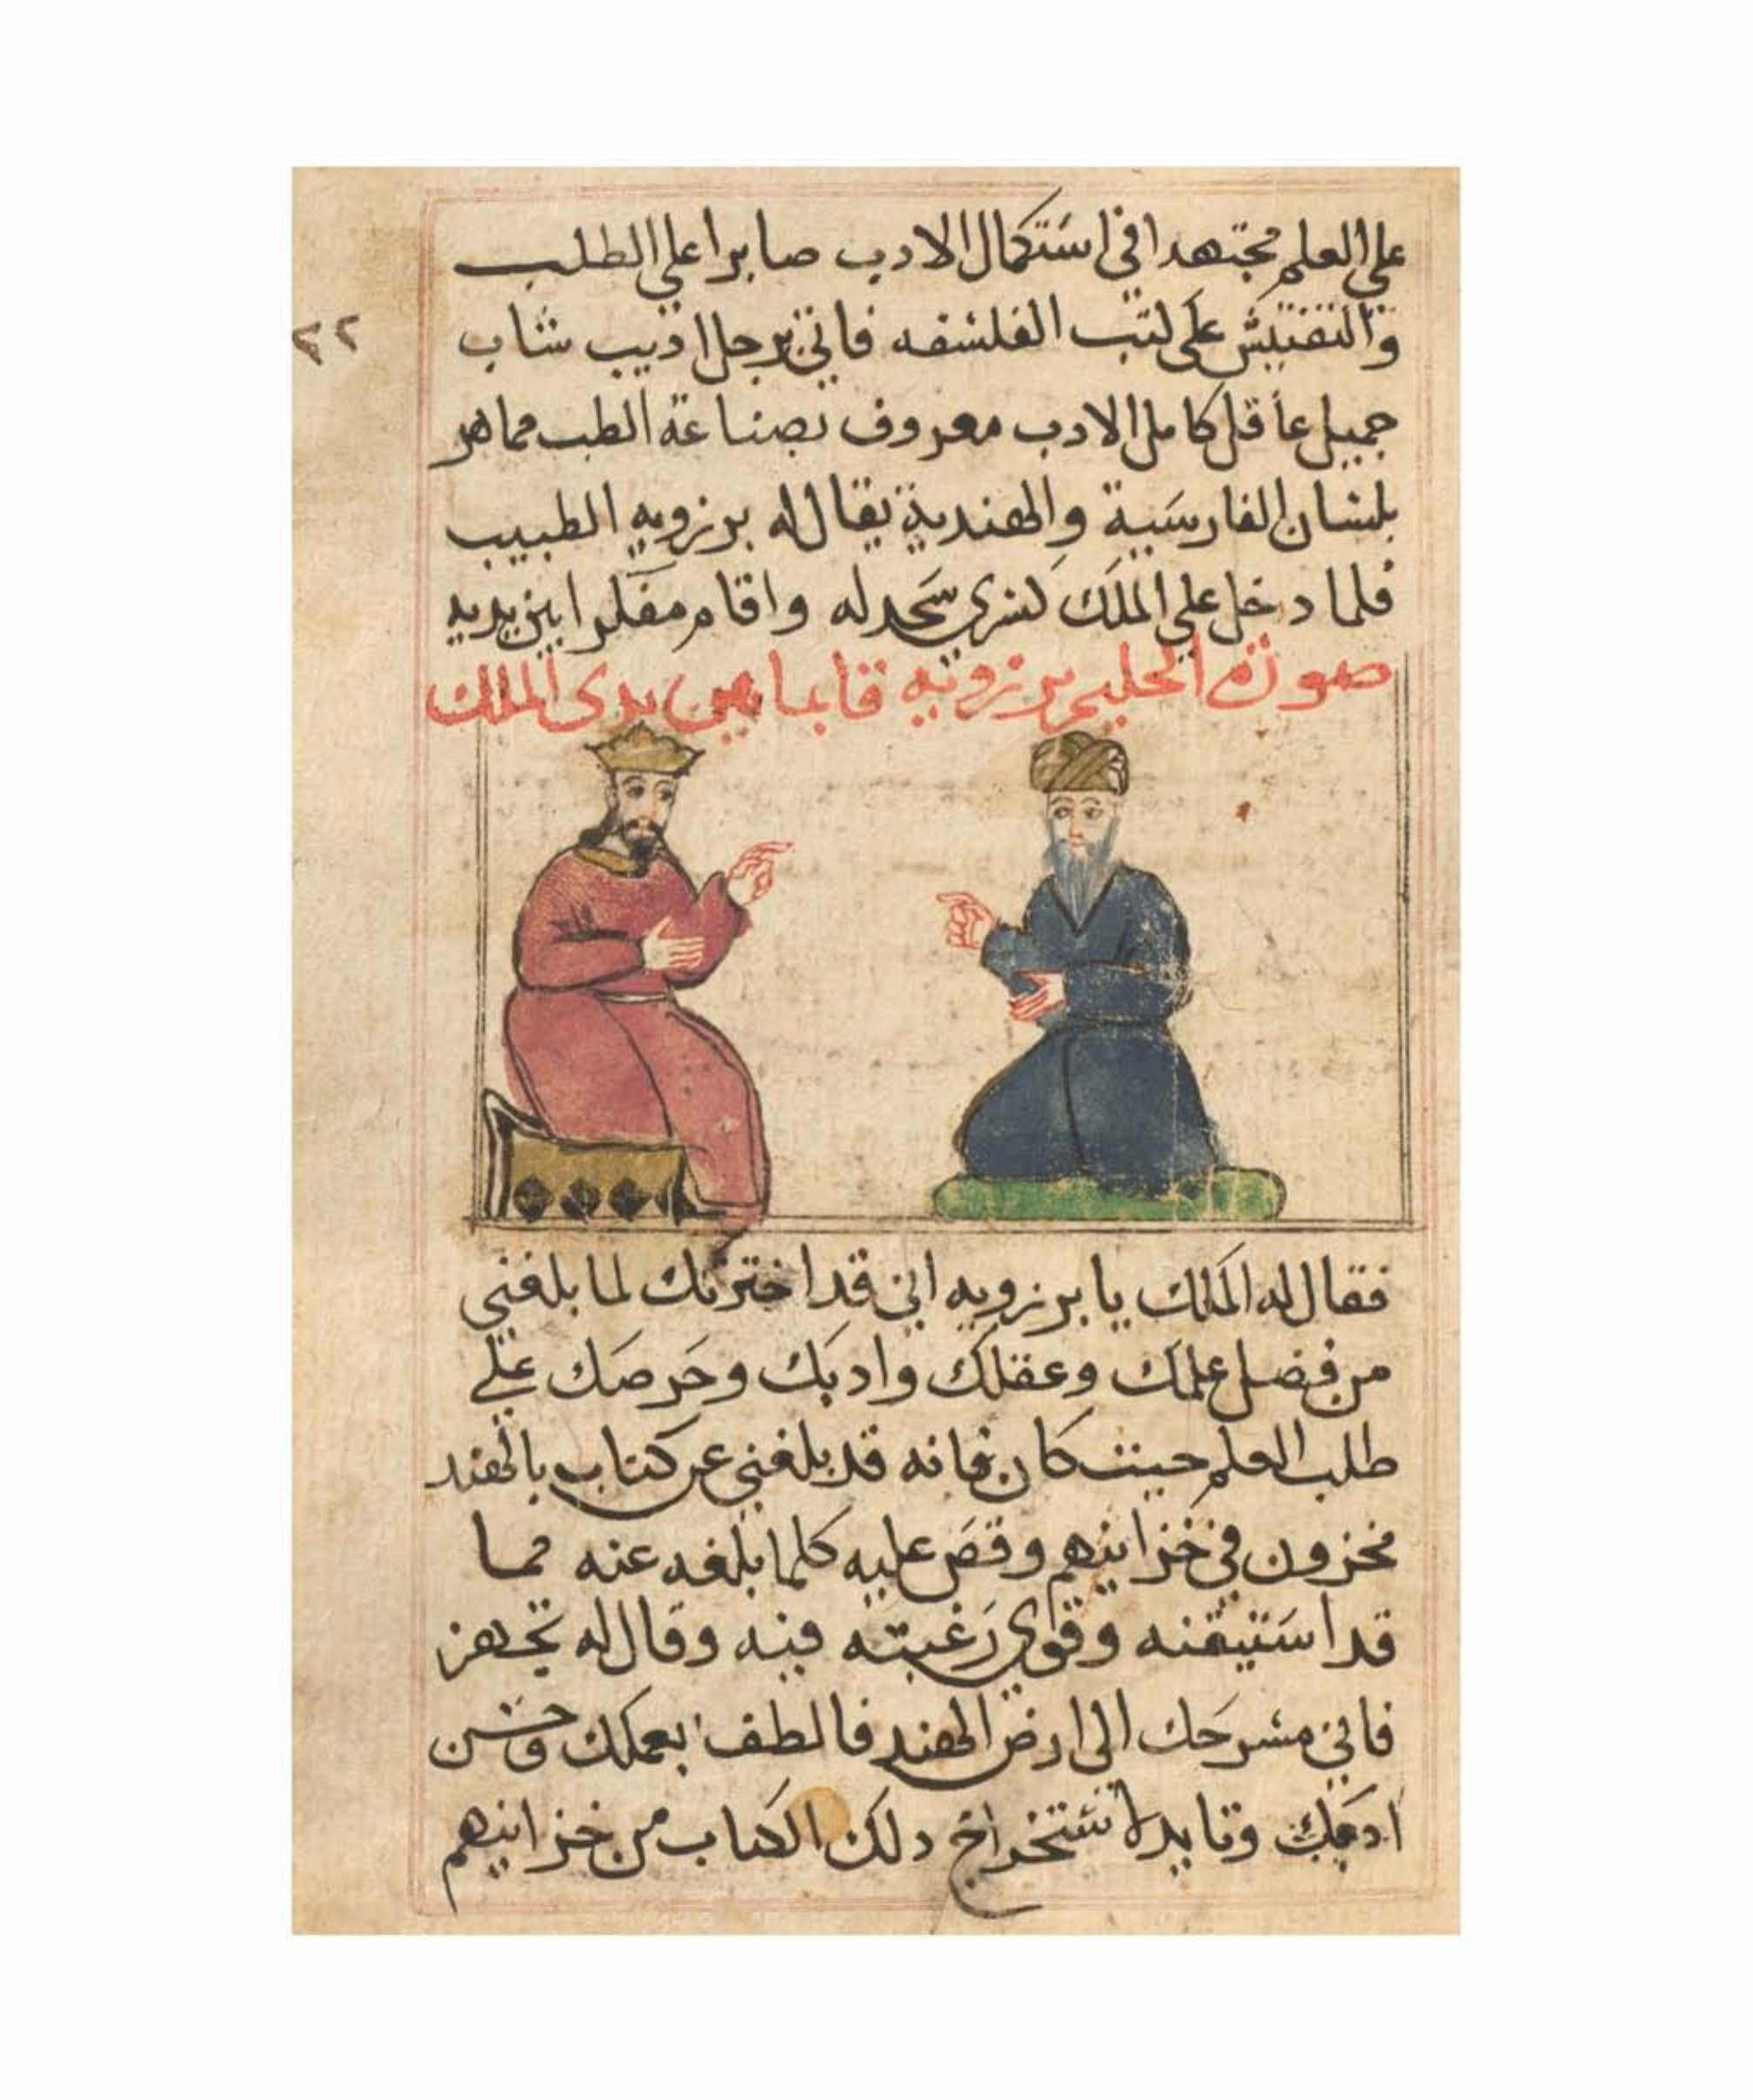 علي العلم مجتهدا في استكمال الادب صابرا علي الطلب
والتفتيش علي كتب الفلسفه فاتي برجل اديب شاب
٢٢
جميل عاقل كامل الادب معروف بصناعة الطب مماهر
بلسان الفارسية والهندية يقال له برزويه الطبيب
فلما دخل علي الملك كسري سجد له واقام مفكرا بين يديه
صورة الحكيم برزويه قايما بين يدى الملك
فقال له الملك يا برزويه اني قد اخترتك لما بلغني
من فضل علمك وعقلك وادبك وحرصك علي
طلب العلم حيث كان فانه قد بلغني عن كتاب بالهند
مخزون في خزاينهم وقص عليه كلما بلغه عنه مما
قد استيقنه وقوي رغبته فيه وقال له تجهز
فاني مسرحك الي ارض الهند فالطف بعملك وحسن
ادبك لاستخراج دلك الكتاب من خزاينهم